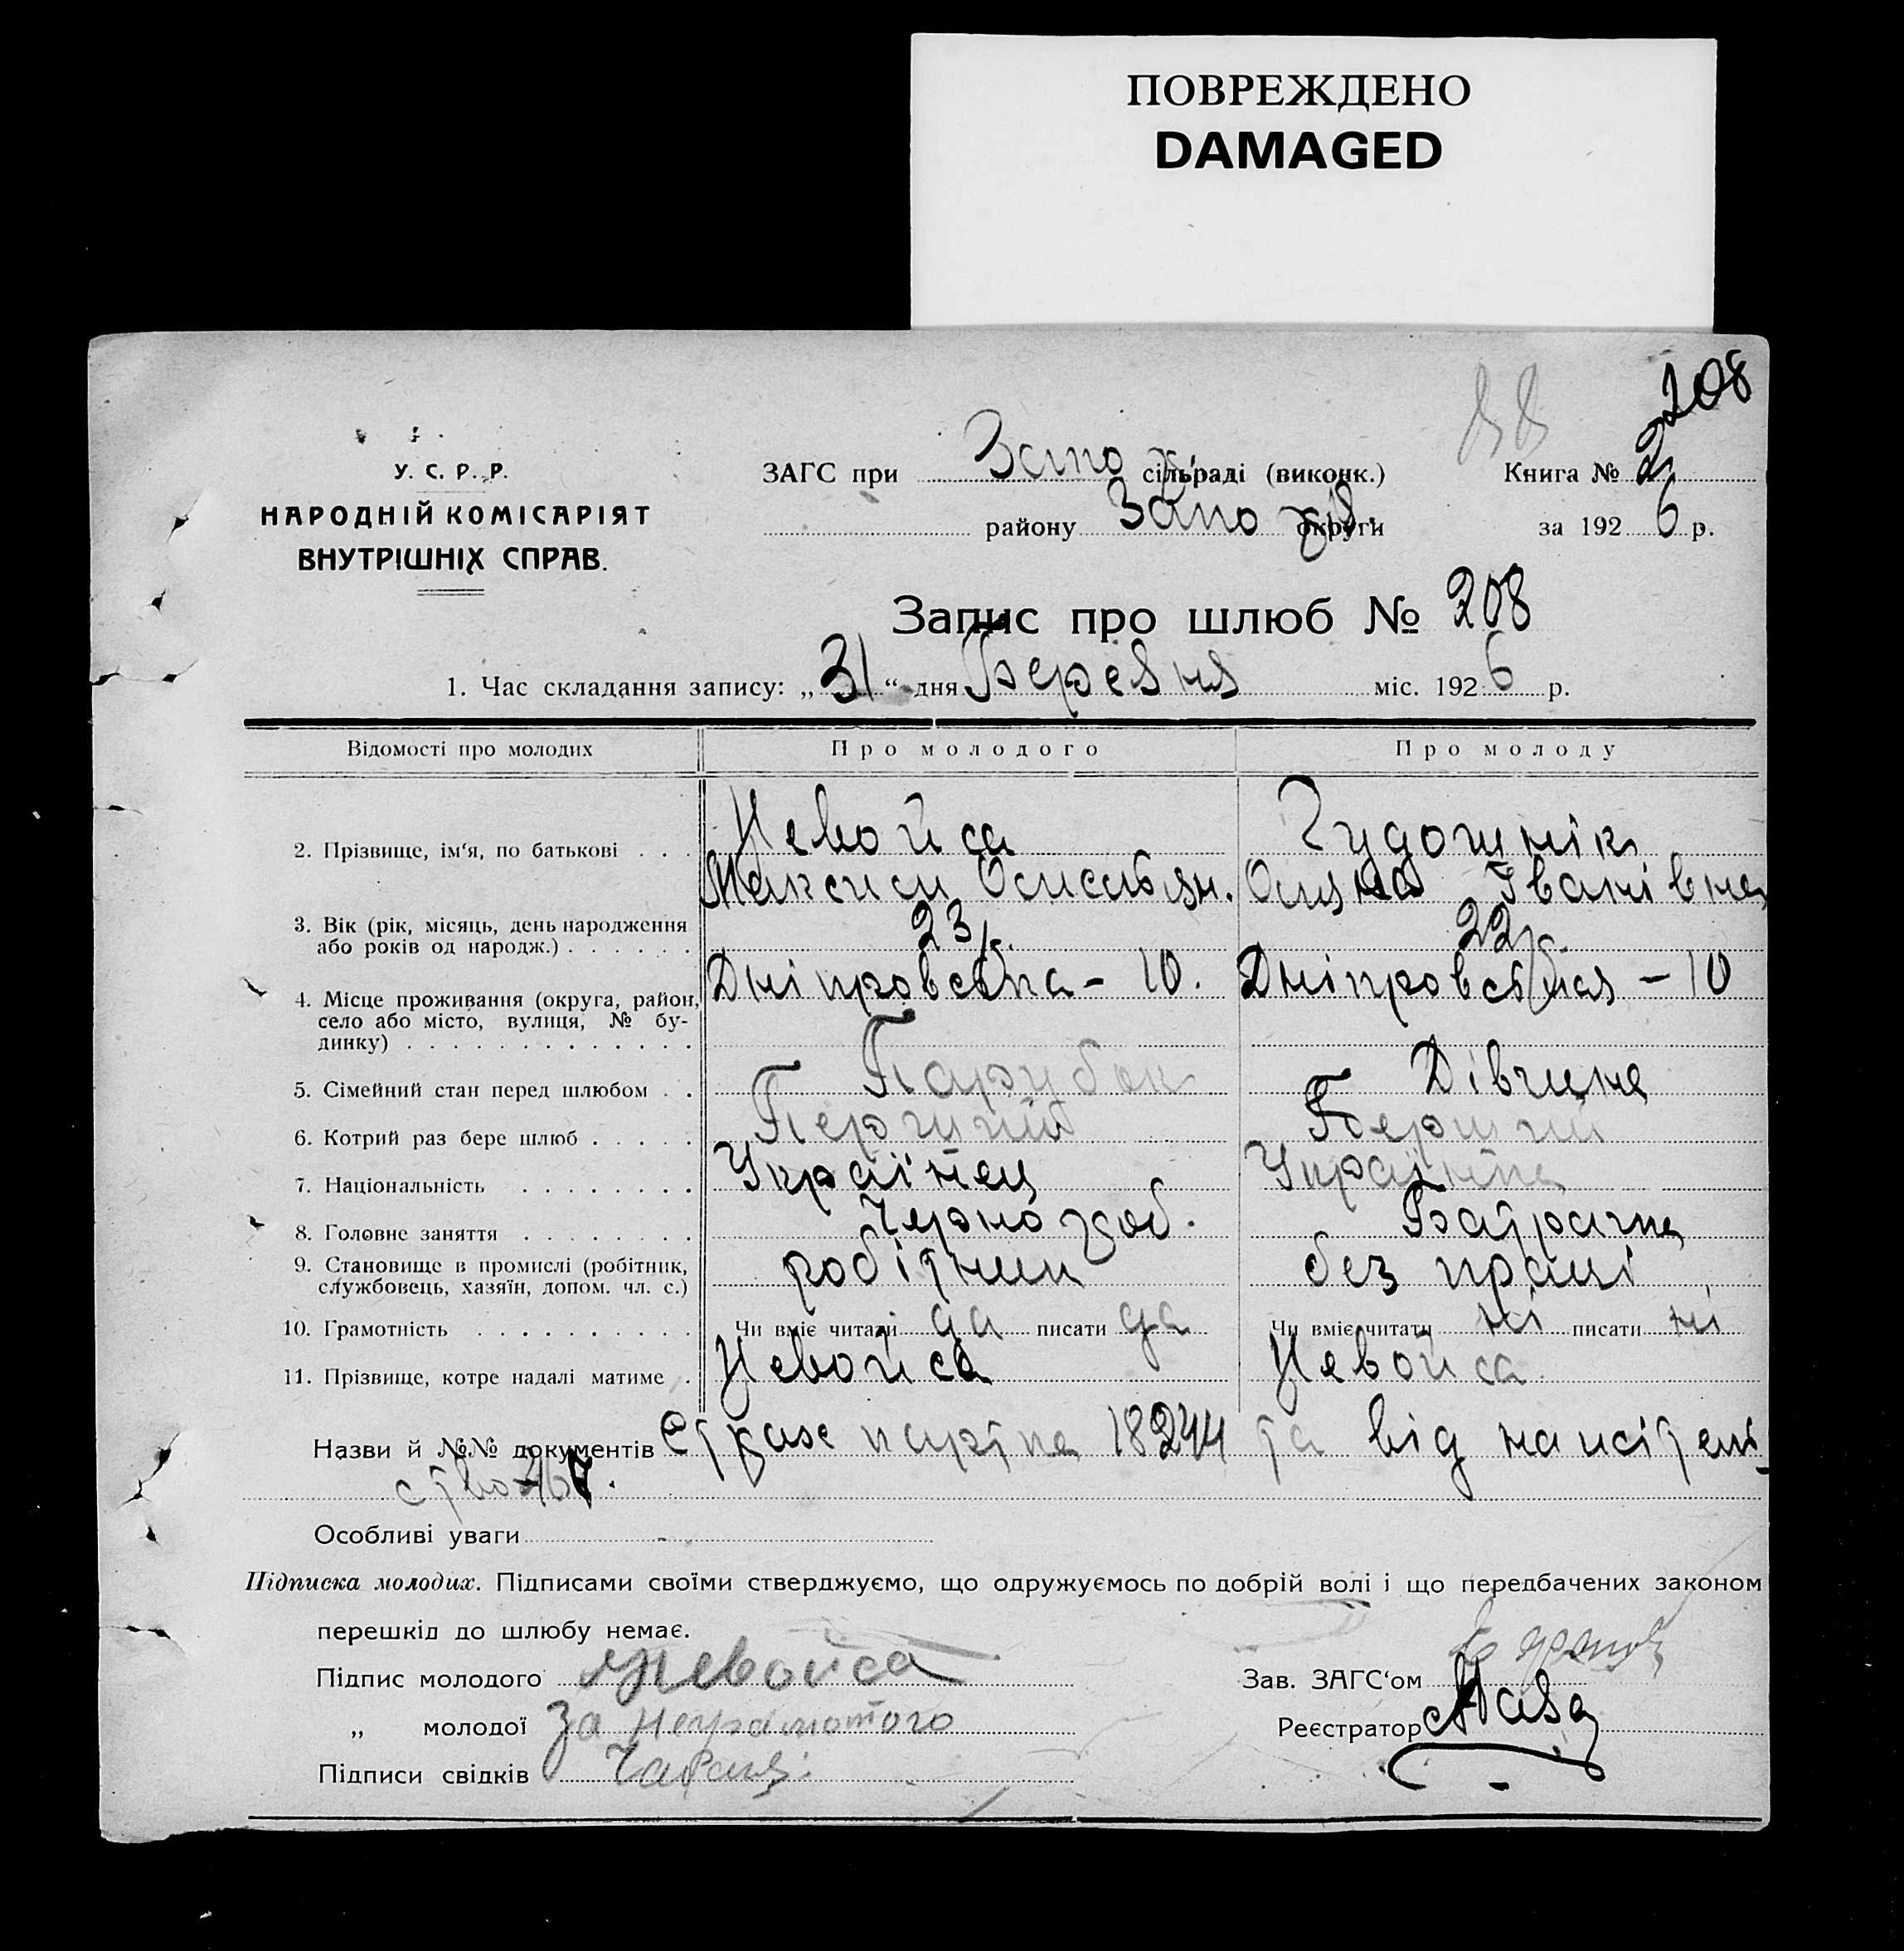 ПОВРЕЖДЕНО
DAMAGED
208
У. С. Р. Р.
НАРОДНІЙ КОМІСАРІЯТ
ВНУТРІШНІХ СПРАВ.
ЗАГС при Запож. сільраді (виконк.) Книга № 2
району Запо округи за 1926 р.
Запис про шлюб № 208
1. Час складання запису: „31“ дня Березня міс. 1926 р.
Відомості про молодих Про молодого Про молоду
2. Прізвище, ім‘я, по батькові . . . Невойса
Максим Іванівна
3. Вік (рік, місяць, день народження 23 р. 22 р.
або років од народж.) . . . . . .
4. Місце проживання (округа, район, Дніпровська - 10. Дніпровська - 10
село або місто, вулиця, № бу-
динку) . . . . . . . . . . . . .
5. Сімейний стан перед шлюбом . . Парубок Дівчина
6. Котрий раз бере шлюб . . . . . Перший Перший
7. Національність . . . . . . . . Українец Українка
8. Головне заняття . . . . . . . . Чернороб. Батрачка
9. Становище в промислі (робітник, робітник без праці
службовець, хазяїн, допом. чл. с.)
10. Грамотність . . . . . . . . . . Чи вміє читати да писати да Чи вміє читати ні писати ні
11. Прізвище, котре надалі матиме . Невойса Невойса
Назви й №№ документів страх картка 18244 та від
Особливі уваги
Підписка молодих. Підписами своїми стверджуємо, що одружуємось по добрій волі і що передбачених законом
перешкід до шлюбу немає.
Підпис молодого Невойса
Зав. ЗАГС‘ом
„ молодої За неграмотного
Реєстратор
Підписи свідків